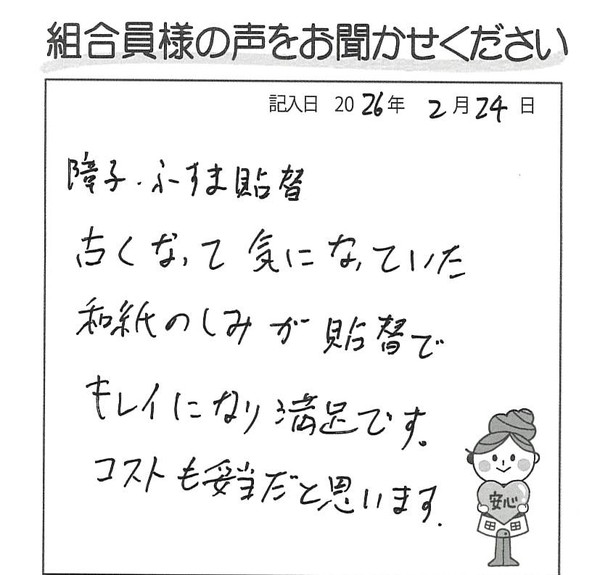 組合員様の声をお聞かせください
記入日 2026年 2月24日
障子・ふすま貼替
古くなって気になっていた
和紙のしみが貼替で
キレイになり満足です。
コストも妥当だと思います。
安心